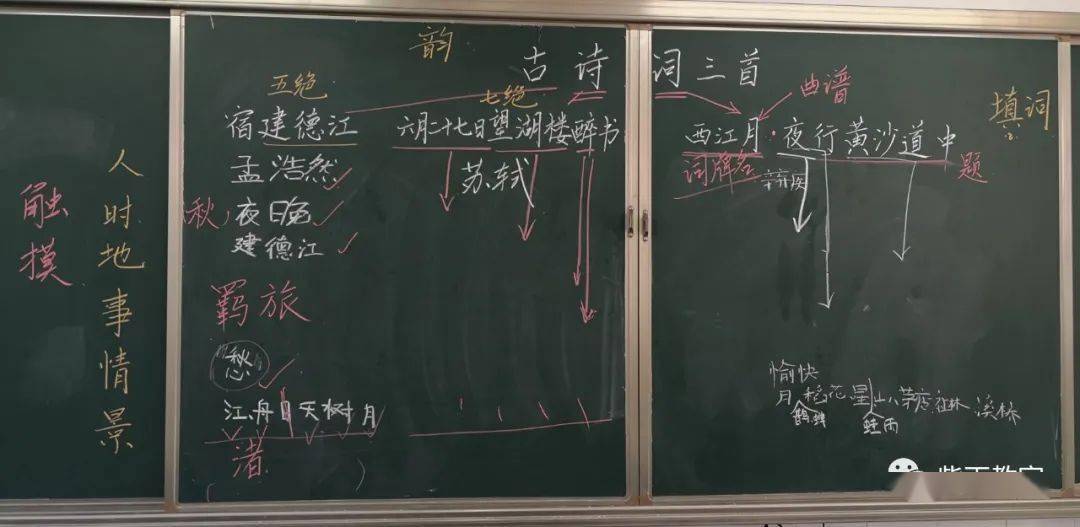 触摸
人时地事情景
韵
古诗词三首
五绝
七绝
曲谱
填词
宿建德江
六月二十七日望湖楼醉书
西江月·夜行黄沙道中
孟浩然
苏轼
词牌名
辛弃疾
题
(秋)夜晚
建德江
羁旅
愁
江舟日天树月
渚
愉快
月稻花星山茅店社林溪
鹊蝉
蛙雨